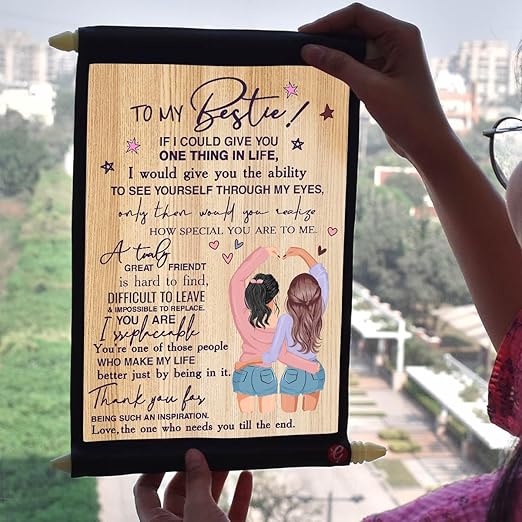 TO MY Bestie!
IF I COULD GIVE YOU
ONE THING IN LIFE,
I would give you the ability
TO SEE YOURSELF THROUGH MY EYES,
only then would you realize
HOW SPECIAL YOU ARE TO ME.
A truly
GREAT FRIENDT
is hard to find,
DIFFICULT TO LEAVE
& IMPOSSIBLE TO REPLACE.
YOU ARE
Irreplaceable
You're one of those people
WHO MAKE MY LIFE
better just by being in it.
Thank you for
BEING SUCH AN INSPIRATION.
Love, the one who needs you till the end.